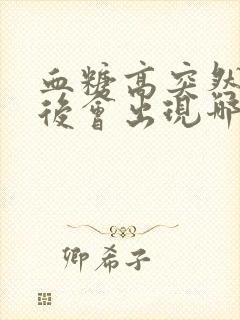 血糖高突然
後會出現哪
卿希子